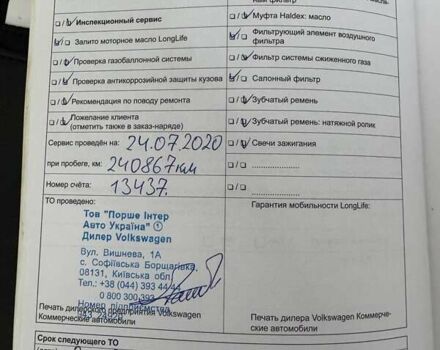 ный фильтр
Инспекционный сервис
Муфта Haldex: масло
Залито моторное масло LongLife
Фильтрующий элемент воздушного
фильтра
Проверка газобаллонной системы
Фильтр системы сжиженного газа
Проверка антикоррозийной защиты кузова
Салонный фильтр
Рекомендация по поводу ремонта
Зубчатый ремень
Пожелание клиента
(отметить также в заказ-наряде)
Зубчатый ремень: натяжной ролик
Сервис проведён на: 24.07.2020
Свечи зажигания
при пробеге, км: 240867км
Номер счёта: 13437.
ТО проведено:
Гарантия мобильности LongLife:
Тов "Порше Інтер
Авто Україна" ①
Дилер Volkswagen
Вул. Вишнева, 1А
с. Софіївська Борщагівка,
08131, Київська обл.
Тел.: +38 (044) 393 44
0 800 300 393
Номер підприємства
Печать дилерского предприятия Volkswagen
Коммерческие автомобили
Печать дилера Volkswagen Коммерче-
ские автомобили
Срок следующего ТО